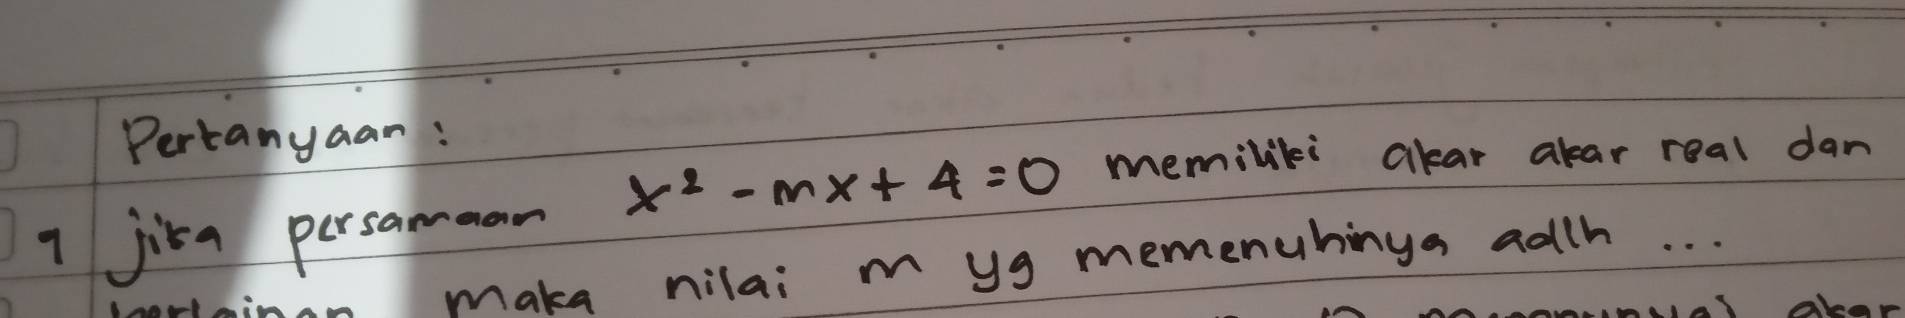 Pertanyaan:
1 jika persamaan x² - mx + 4 = 0 memiliki akar akar real dan
berlainan maka nilai m yg memenuhinya adlh ...
mempunyai akar